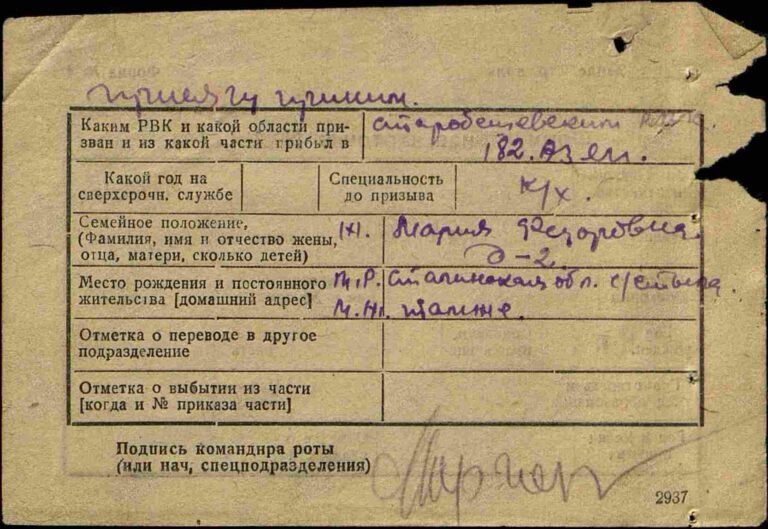 присягу приним.
Каким РВК и какой области при-
зван и из какой части прибыл в
Старобешевским
182. Аз сп.
Какой год на
сверхсрочн. службе
Специальность
до призыва
к/х.
Семейное положение,
(Фамилия, имя и отчество жены,
отца, матери, сколько детей)
ж. Мария Федоровна
д-2.
Место рождения и постоянного
жительства [домашний адрес]
М.Р. Сталинская обл. с/Стыла.
М.Ж. также.
Отметка о переводе в другое
подразделение
Отметка о выбытии из части
[когда и № приказа части]
Подпись командира роты
(или нач, спецподразделения)
2937